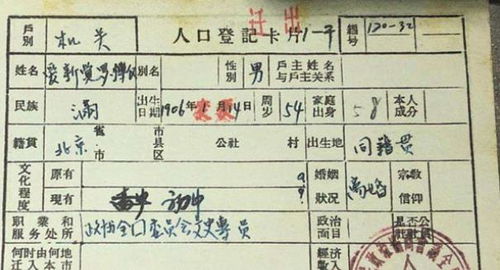 迁出
戶別 机关 人口登記卡片1-于 編号 120-32
姓名 爱新觉罗·溥仪 別名 性別 男 戶主姓名与戶主关系
民族 滿 出生日期 1906年 月14日 周岁 54 家庭出身 本人成分
籍貫 北京 省市 市县区 公社 村 出生地 同籍貫
文化程度 原有 婚姻狀況 离婚 宗教信仰
現有 初中
职业和服务处所 政协全国委员会文史专员 政治面目 是否公
何时由何地迁入本市 經济